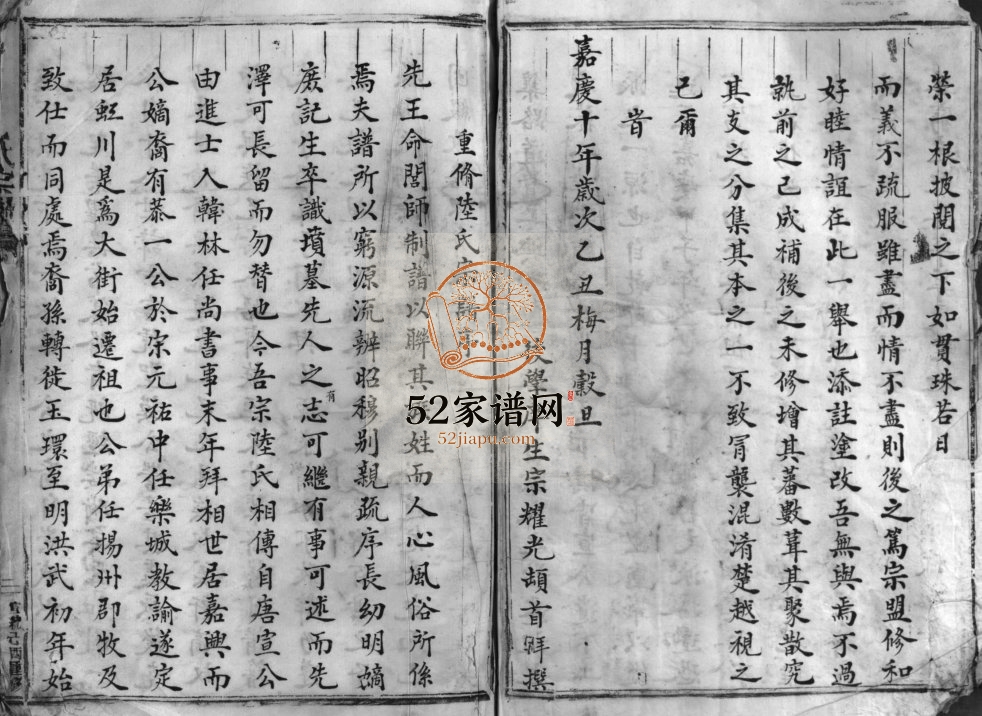 榮一根披閱之下如貫珠若日
而義不疏服雖盡而情不盡則後之篤宗盟修和
好睦情誼在此一舉也添註塗改吾無與焉不過
就前之已成補後之未修增其蕃數葺其聚散究
其支之分集其本之一不致冐襲混淆楚越視之
已爾
旹
嘉慶十年歲次乙丑梅月穀旦
學生宗耀光頓首拜撰
重脩陸氏宗譜序
先王命閭師制譜以聯其姓而人心風俗所係
焉夫譜所以窮源流辨昭穆别親疏序長幼明嫡
庶記生卒識墳墓先人之有志可繼有事可述而先
澤可長留而勿替也今吾宗陸氏相傳自唐宣公
由進士入韓林任尚書事末年拜相世居嘉興而
公嫡裔有恭一公於宋元祐中任樂城教諭遂定
居虹川是爲大街始遷祖也公弟任揚州郡牧及
致仕而同處焉裔孫轉徙玉環至明洪武初年始
52家谱网
52jiapu.com